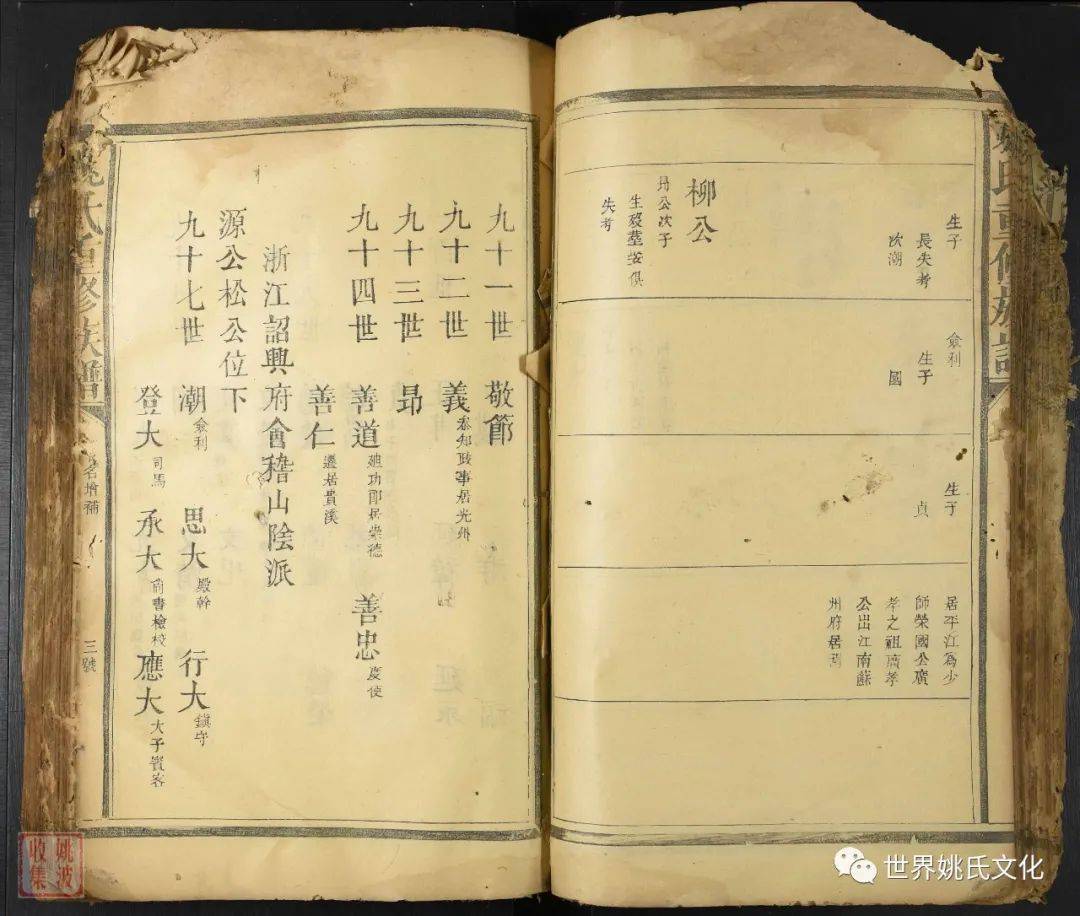 生子
長失考
次潮
僉判
生子
國
生子
貞
居平江為少
師榮國公廣
孝之祖廣孝
公出江南蘇
州府居
柳公
丹公次子
生歿塋娶俱
失考
九十一世 敬節
九十二世 義 叅知政事居光州
九十三世 昂
九十四世 善道 廸功郎居崇德 善忠 度使
善仁 遷居貴溪
浙江詔興府會稽山陰派
源公松公位下
九十七世 潮 僉判 思大 殿幹 行大 鎮守
登大 司馬 承大 尚書檢校 應大 大子賓客
姚氏重修族譜
名增補
三號
姚氏重修族譜
姚波
收集
世界姚氏文化